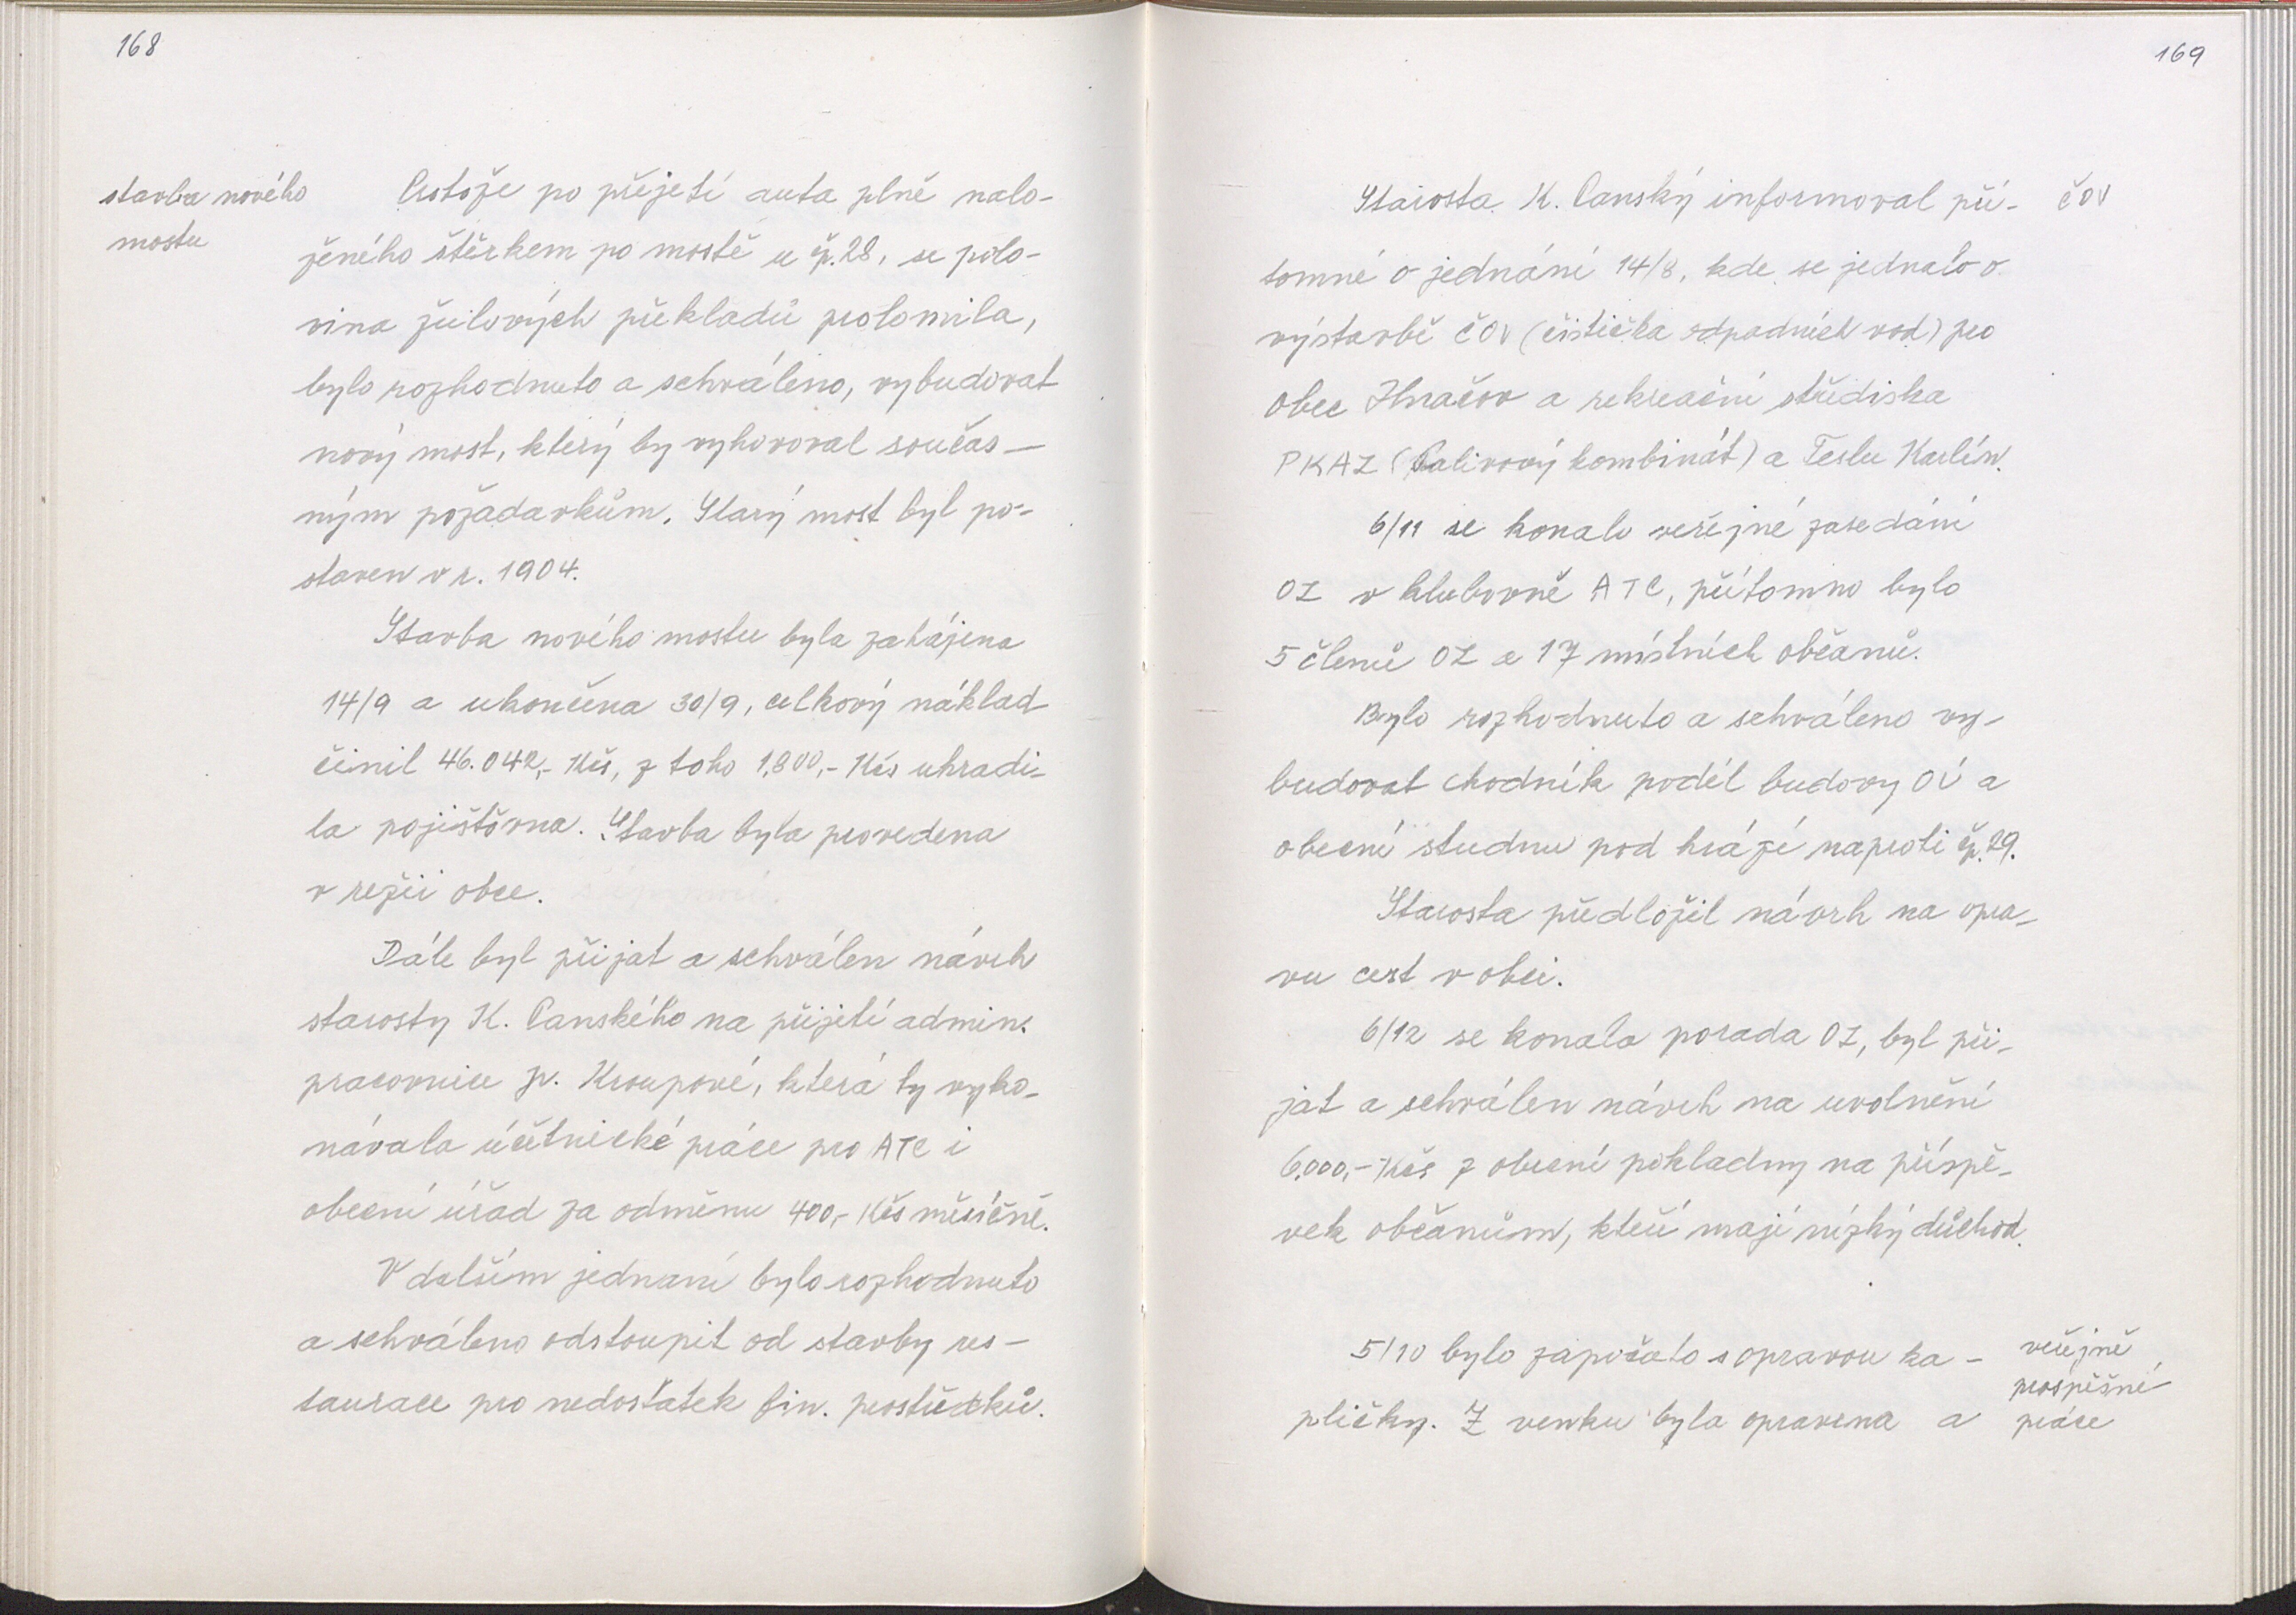 168
stavba nového
mostu
Protože po přejetí auta plně nalo-
ženého štěrkem po mostě u čp. 28, se polo-
vina žulových překladů prolomila,
bylo rozhodnuto a schváleno, vybudovat
nový most, který by vyhovoval součas-
ným požadavkům. Starý most byl po-
staven v r. 1904.
Stavba nového mostu byla zahájena
14/9 a ukončena 30/9, celkový náklad
činil 46.042,- Kčs, z toho 1,800,- Kčs uhradi-
la pojišťovna. Stavba byla provedena
v režii obce.
Dále byl přijat a schválen návrh
starosty K. Panského na přijetí admin.
pracovnice p. Kroupové, která by vyko-
návala účetnické práce pro ATC i
obecní úřad za odměnu 400,- Kčs měsíčně.
V dalším jednaní bylo rozhodnuto
a schváleno odstoupit od stavby res-
taurace pro nedostatek fin. prostředků.
169
Starosta K. Panský informoval pří-
tomné o jednání 14/8, kde se jednalo o
výstavbě ČOV (čistička odpadních vod) pro
obec Hnačov a rekreační střediska
PKAZ (Palivový kombinát) a Teslu Karlín.
6/11 se konalo veřejné zasedání
OZ v klubovně ATC, přítomno bylo
5 členů OZ a 17 místních občanů.
Bylo rozhodnuto a schváleno vy-
budovat chodník podél budovy OÚ a
obecní studnu pod hrází naproti čp. 29.
Starosta předložil návrh na opra-
vu cest v obci.
6/12 se konala porada OZ, byl při-
jat a schválen návrh na uvolnění
6.000,- Kčs z obecní pokladny na příspě-
vek občanům, kteří mají nízký důchod.
5/10 bylo započato s opravou ka-
pličky. Z venku byla opravena a
ČOV
veřejně
prospěšné
práce